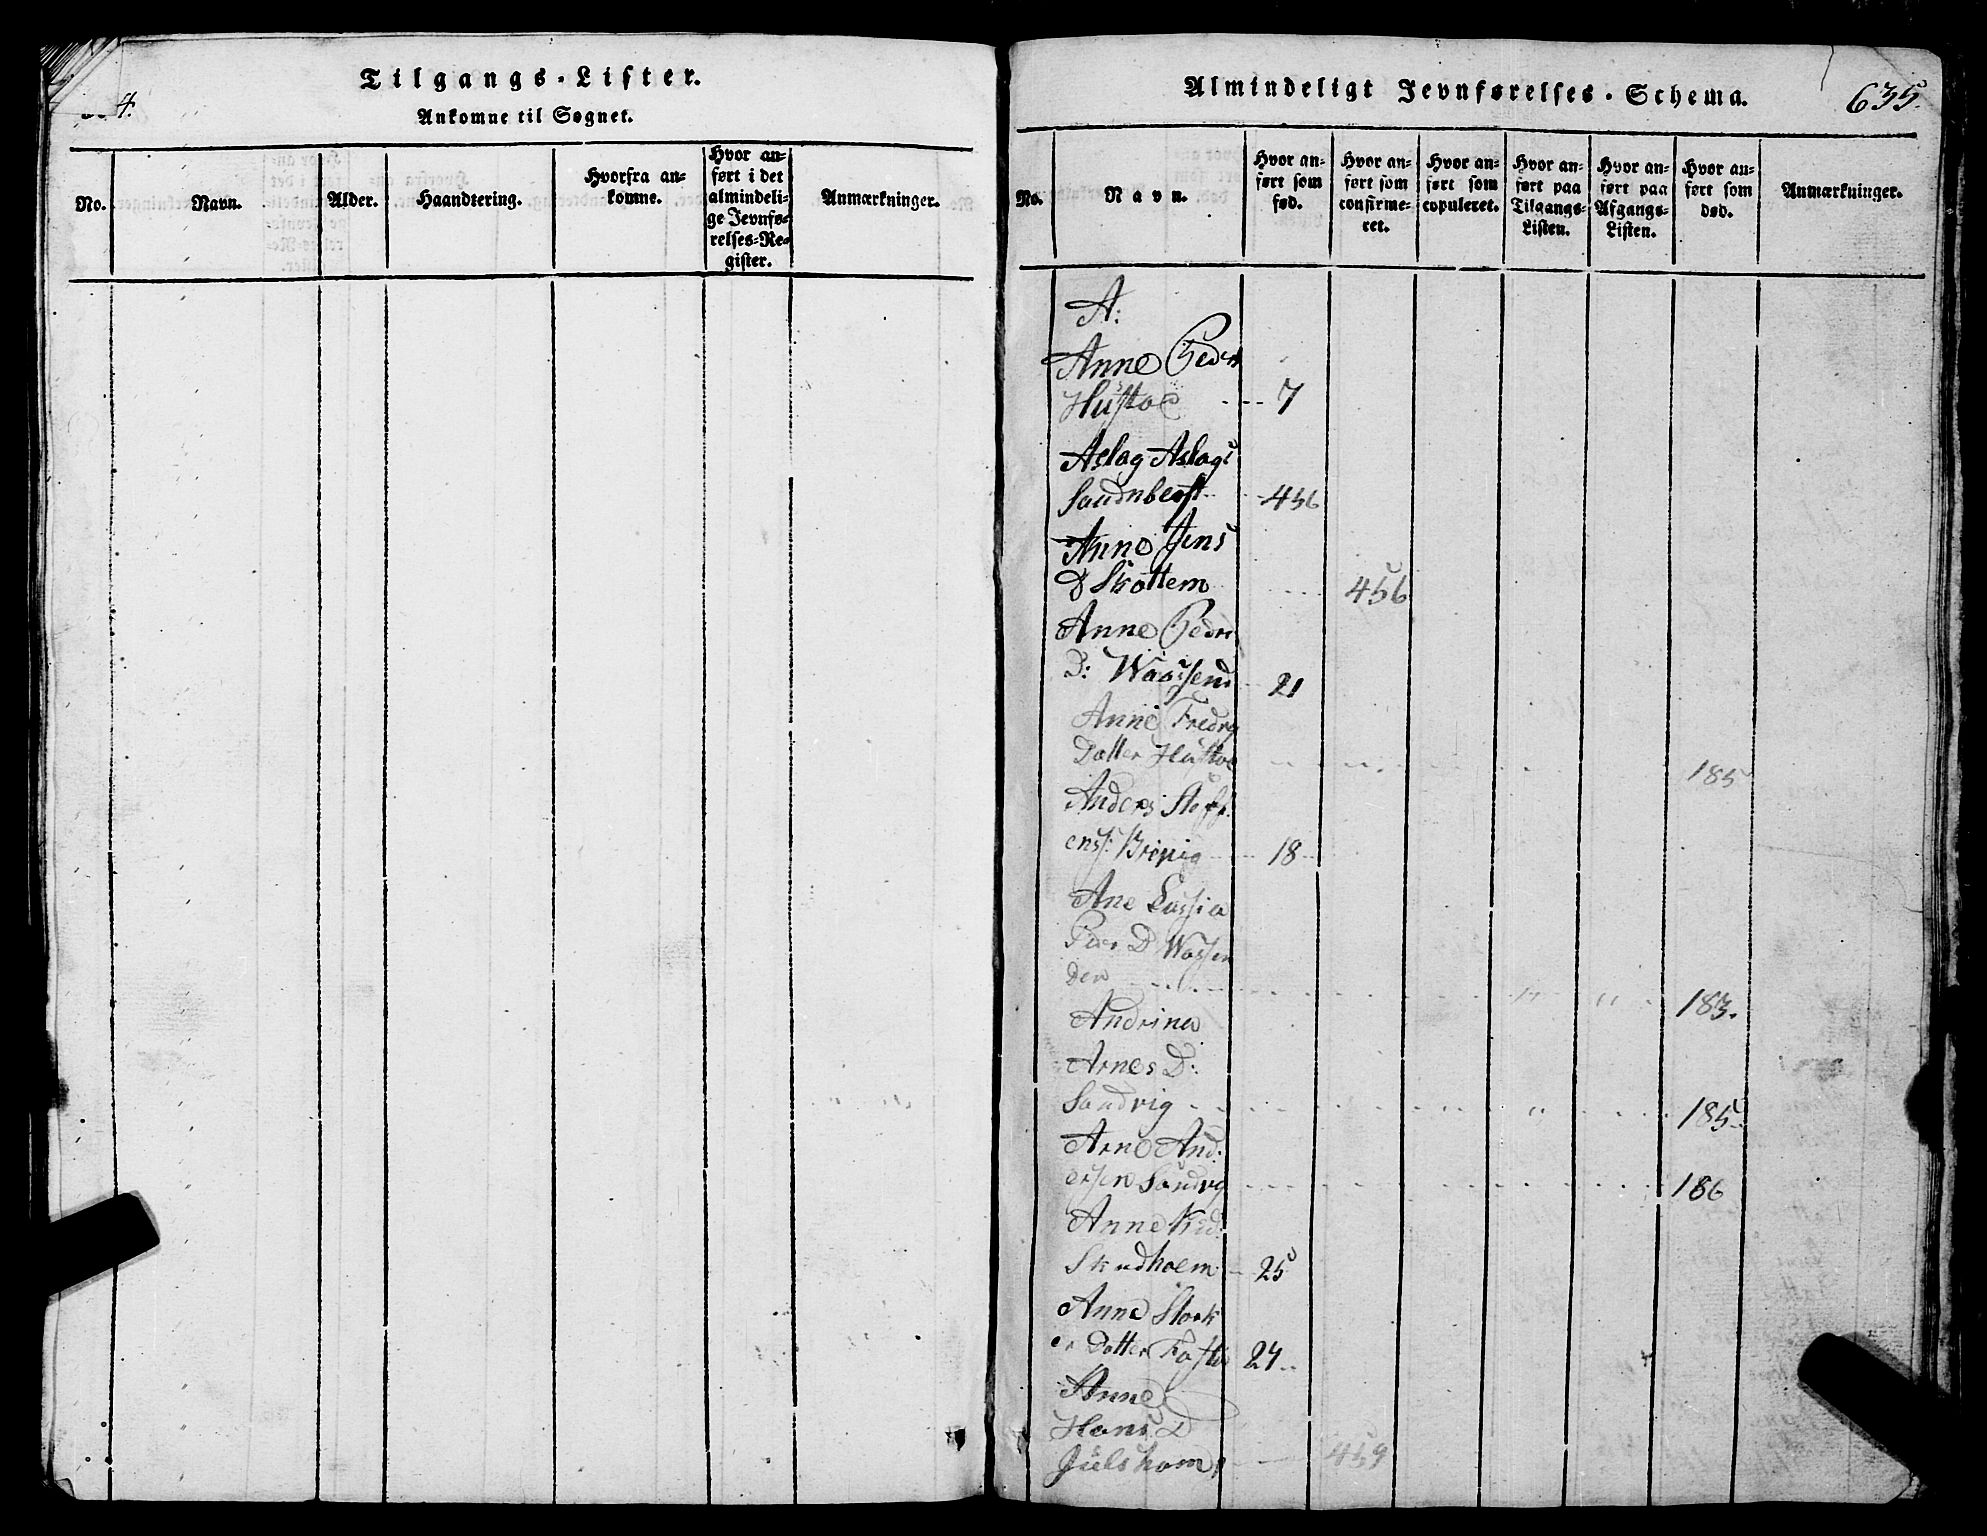 4.
Tilgangs-Lister.
Ankomne til Sognet.
No.
Navn.
Alder.
Haandtering.
Hvorfra an-
komne.
Hvor an-
ført i det
almindeli-
ge Jevnfø-
relses-Re-
gister.
Anmærkninger.
Almindeligt Jevnførelses-Schema.
635.
No.
Navn.
Hvor an-
ført som
fød.
Hvor an-
ført som
confirme-
ret.
Hvor an-
ført som
copuleret.
Hvor an-
ført paa
Tilgangs-
Listen.
Hvor an-
ført paa
Afgangs-
Listen.
Hvor an-
ført som
død.
Anmærkninger.
A:
Anne Peders
Hustoe 7
Aslag Aslags
456
Anne Jens
D Skottem 456
Anne Peders
D: Waassend 21
Anne Fredrig
Datter Hustoe 185
Anders Steff
ens: 18
Ane Lassia
Peder D Wassen
den " " 183.
Andrina
Arnes D:
Sandvig " 185
Arne And:
ersen Sandvig 186
Anne
Skudholm 25
Anne Stork
er Datter 24
Anne
Hans D
Juelsholm 459